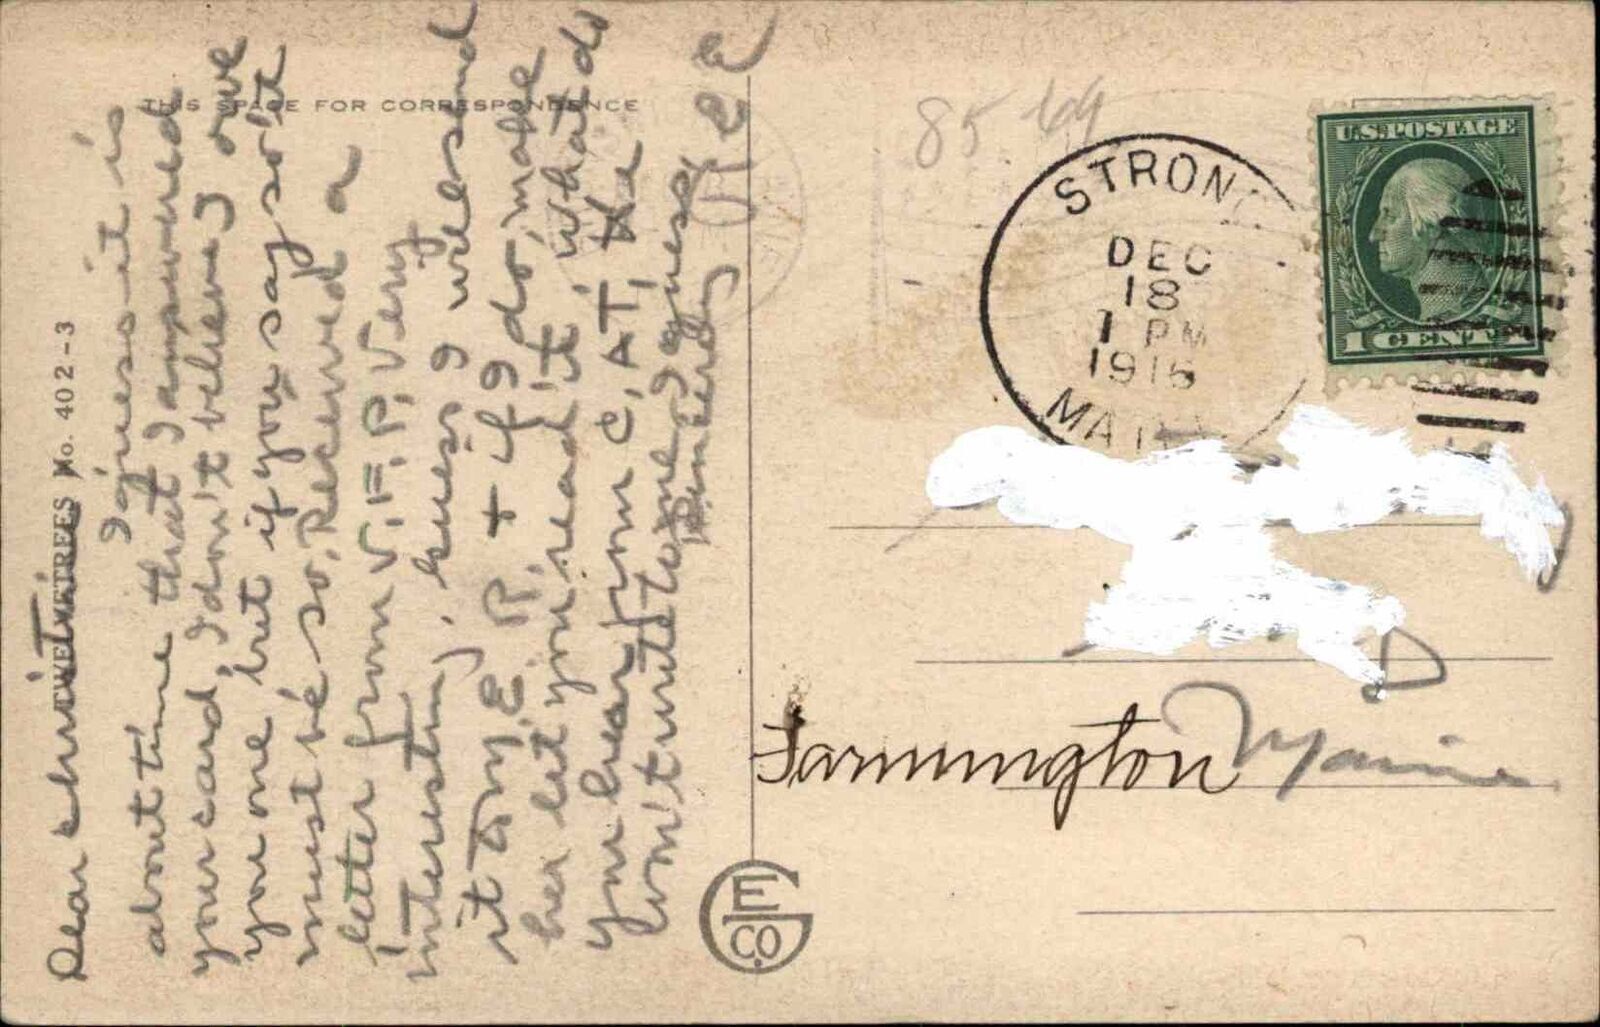 THIS SPACE FOR CORRESPONDENCE
No. 402-3
Dear
I guess it is
about time that I answered
your card, I don't believe I owe
you one but if you say so it
must be so. Received a
letter from V.F.P. Very
interesting, guess I will send
it to my E. R. + if I do, make
her let you read it, what do
you hear from C, A T, He
won't write to me I guess
E E
85 69
STRONG
DEC
18
1 PM
1916
MAINE
U.S. POSTAGE
1 CENT 1
Farmington Maine
E G CO.